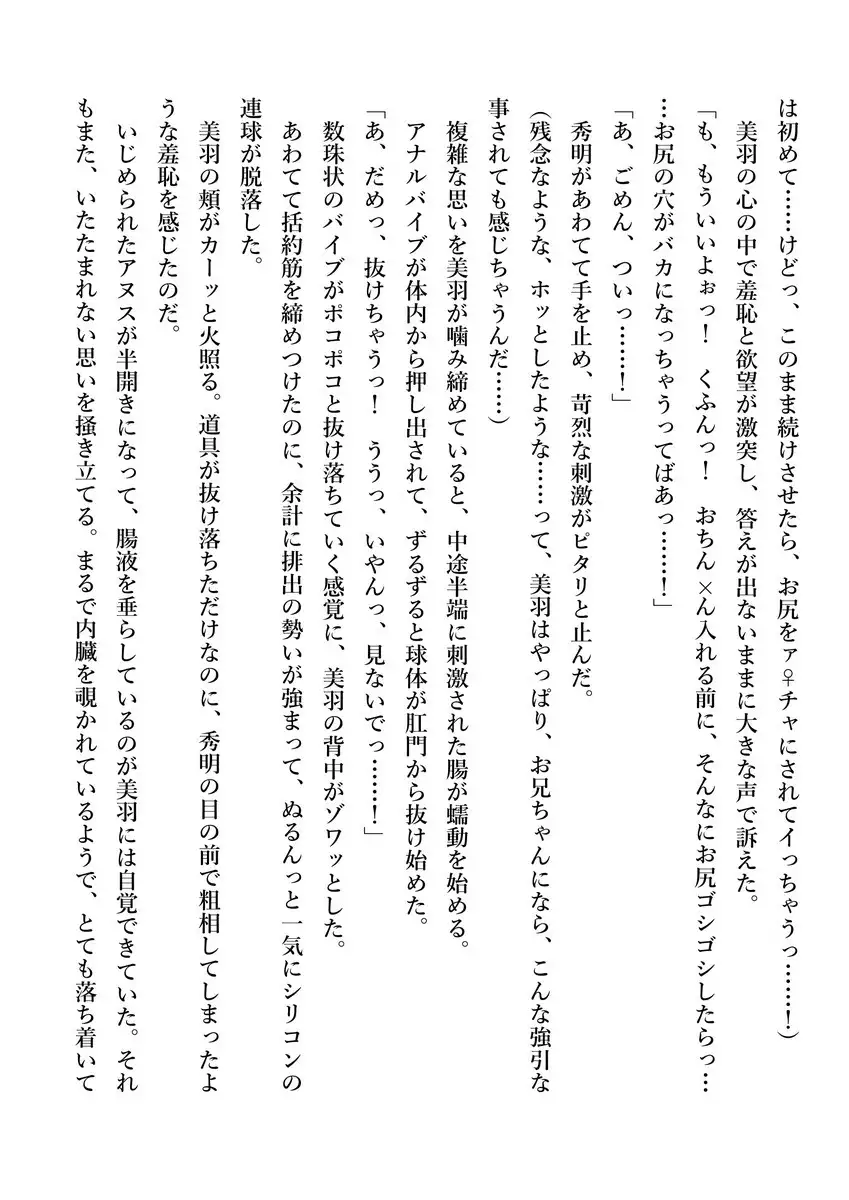 は初めて……けどっ、このまま続けさせたら、お尻をァ♀チャにされてイっちゃうっ……！）
美羽の心の中で羞恥と欲望が激突し、答えが出ないままに大きな声で訴えた。
「も、もういいよぉっ！　くふんっ！　おちん×ん入れる前に、そんなにお尻ゴシゴシしたらっ…
…お尻の穴がバカになっちゃうってばあっ……！」
「あ、ごめん、ついっ……！」
秀明があわてて手を止め、苛烈な刺激がピタリと止んだ。
（残念なような、ホッとしたような……って、美羽はやっぱり、お兄ちゃんになら、こんな強引な
事されても感じちゃうんだ……）
複雑な思いを美羽が噛み締めていると、中途半端に刺激された腸が蠕動を始める。
アナルバイブが体内から押し出されて、ずるずると球体が肛門から抜け始めた。
「あ、だめっ、抜けちゃうっ！　ううっ、いやんっ、見ないでっ……！」
数珠状のバイブがポコポコと抜け落ちていく感覚に、美羽の背中がゾワッとした。
あわてて括約筋を締めつけたのに、余計に排出の勢いが強まって、ぬるんっと一気にシリコンの
連球が脱落した。
美羽の頬がカーッと火照る。道具が抜け落ちただけなのに、秀明の目の前で粗相してしまったよ
うな羞恥を感じたのだ。
いじめられたアヌスが半開きになって、腸液を垂らしているのが美羽には自覚できていた。それ
もまた、いたたまれない思いを掻き立てる。まるで内臓を覗かれているようで、とても落ち着いて